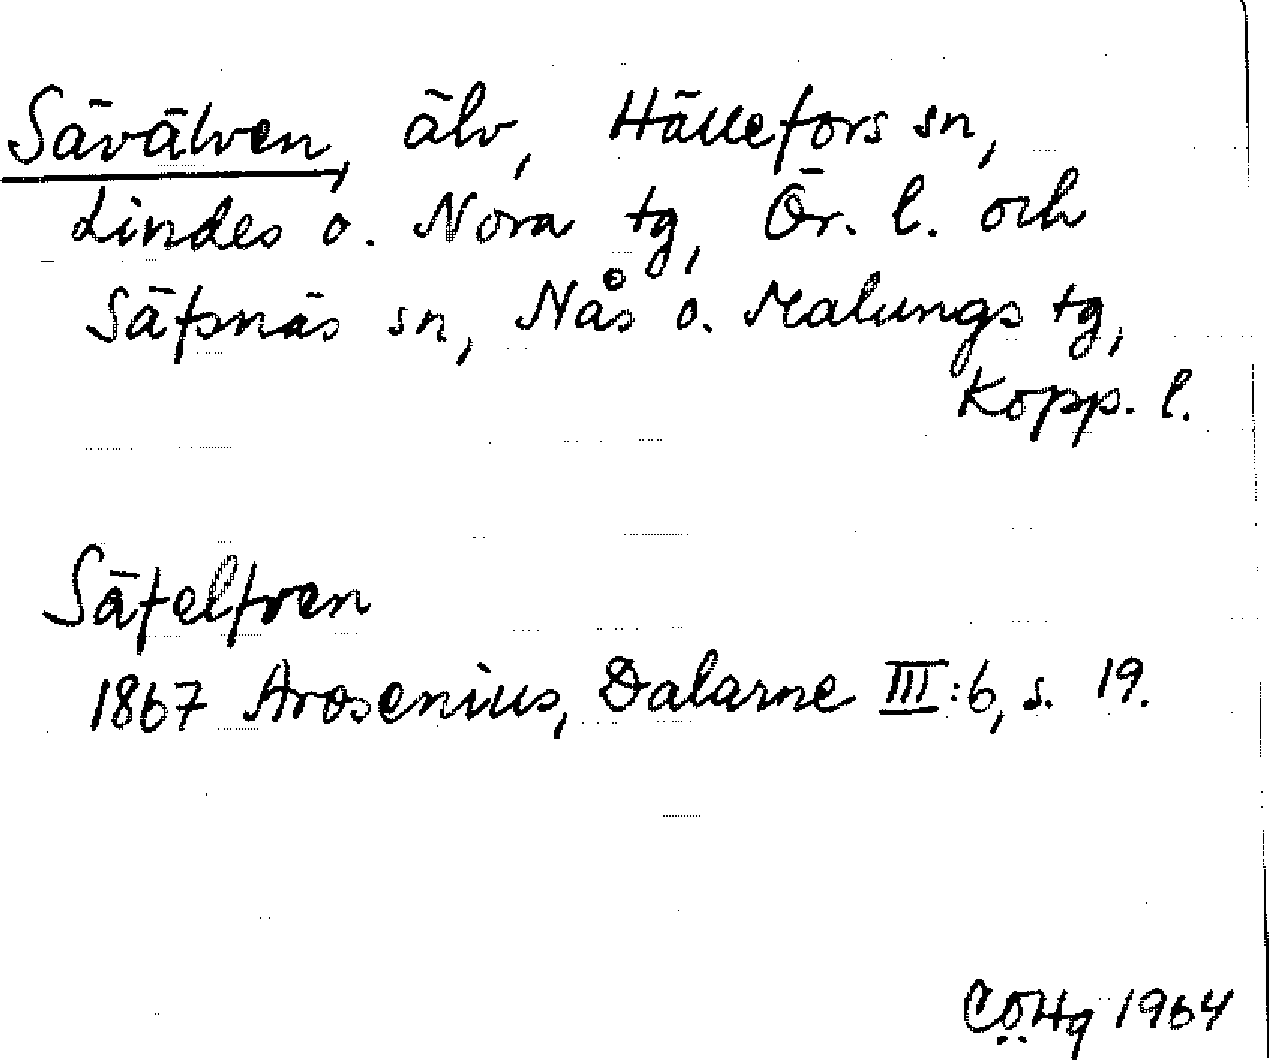 Sävälven, älv, Hällefors sn,
Lindes o. Nora tg, Ör. l. och
Säfsnäs sn, Nås o. Malungs tg,
Kopp. l.
Säfelfven
1867 Arosenius, Dalarne III:6, s. 19.
CÖHg 1964